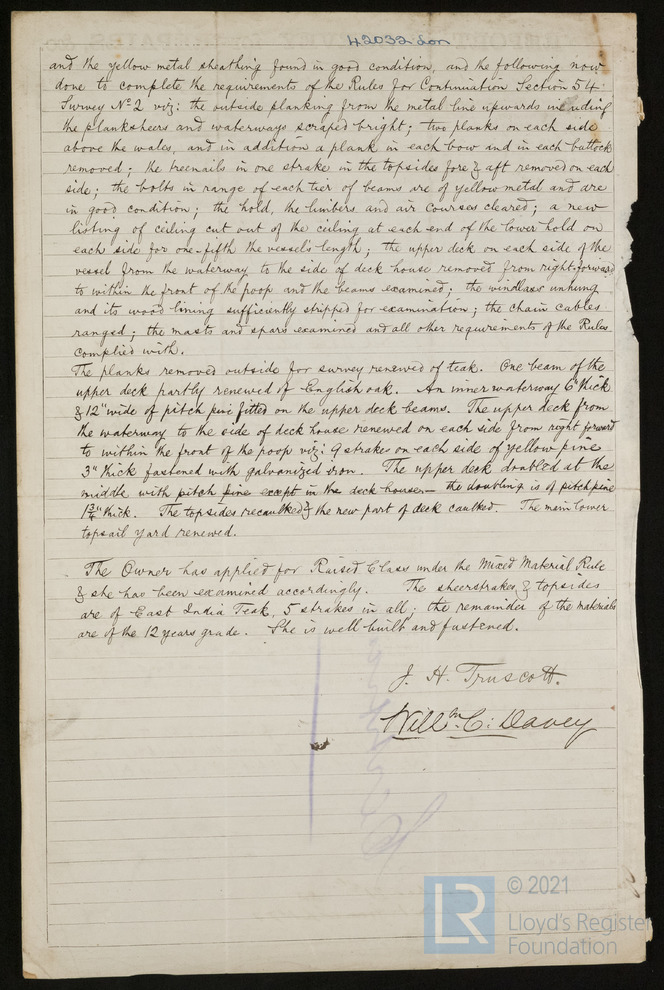 42032 Lon
and the yellow metal sheathing found in good condition, and the following now
done to complete the requirements of the Rules for Continuation Section 54
Survey No 2 viz: the outside planking from the metal line upwards including
the planksheers and waterways scraped bright; two planks on each side
above the wales, and in addition a plank in each bow and in each buttock
removed; the treenails in one strake in the topsides fore & aft removed on each
side; the bolts in range of each tier of beams are of yellow metal and are
in good condition; the hold, the limbers and air courses cleared; a new
listing of ceiling cut out of the ceiling at each end of the lower hold on
each side for one-fifth the vessel's length; the upper deck on each side of the
vessel from the waterway to the side of deck house removed from right forward
to within the front of the poop and the beams examined; the windlass unhung
and its wood lining sufficiently stripped for examination; the chain cables
ranged; the masts and spars examined and all other requirements of the Rules
complied with.
The planks removed outside for survey renewed of teak. One beam of the
upper deck partly renewed of English oak. An inner waterway 6" thick
& 12" wide of pitch pine fitted on the upper deck beams. The upper deck from
the waterway to the side of deck house renewed on each side from right forward
to within the front of the poop viz: 9 strakes on each side of yellow pine
3" thick fastened with galvanized iron. The upper deck doubled at the
middle with pitch pine except in the deck house — the doubling is of pitch pine
1 3/4" thick. The topsides recaulked & the new part of deck caulked. The main lower
topsail yard renewed.
The Owner has applied for Raised Class under the Mixed Material Rule
& she has been examined accordingly. The sheerstrakes & topsides
are of East India Teak, 5 strakes in all; the remainder of the materials
are of the 12 years grade. She is well built and fastened.
J. H. Truscott.
Willm. C: Davey
LR
© 2021
Lloyd's Register
Foundation